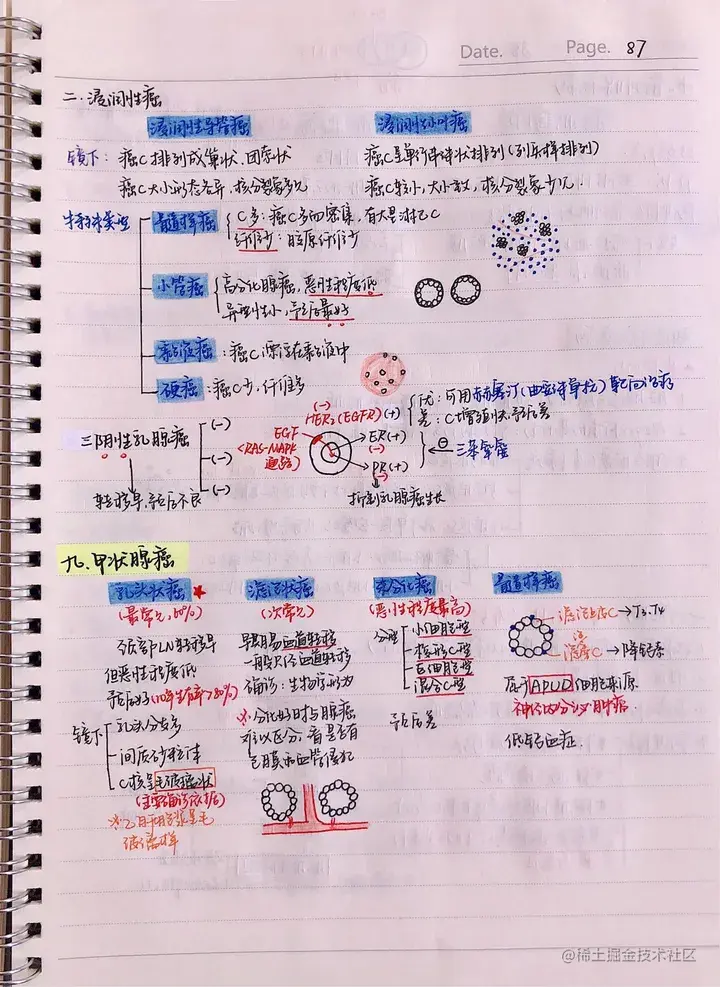 Date. Page. 87
二.浸润性癌
浸润性导管癌 浸润性小叶癌
镜下: 癌C排列成巢状、团索状 癌C呈单行串珠状排列(列兵样排列)
癌C大小形态各异,核分裂象多见 癌C较小,大小一致,核分裂象少见.
特殊类型
髓样癌 C多:癌C多而密集,有大量淋巴C
纤维少:胶原纤维少
小管癌 高分化腺癌,恶性程度低
异型性小,预后最好
黏液癌:癌C漂浮在黏液中
硬癌:癌C少,纤维多
三阴性乳腺癌 (-)
(-)
(-)
转移早,预后不良
(-)
HER2(EGFR)(+) 优:可用赫赛汀(曲妥珠单抗)靶向治疗
差:C增殖快,预后差
EGF
<RAS-MAPK
通路>
ER(+)
(-)
PR(+)
(-)
⊖ 三苯氧胺
抑制乳腺癌生长
九、甲状腺癌
乳头状癌★ 滤泡状癌 未分化癌 髓样癌
(最常见,60%) (次常见) (恶性程度最高)
颈部LN转移早
但恶性程度低
预后好(10年生存率>80%)
镜下
乳头分支多
间质砂粒体
C核呈毛玻璃状
(主要确诊依据)
※乙肝胞浆呈毛
玻璃样
早期易血道转移
一般只经血道转移
确诊:生物学行为
※分化好时与腺瘤
难以区分,看是否有
包膜和血管侵犯
分型
小细胞型
梭形C型
巨细胞型
混合C型
预后差
滤泡上皮C→T3、T4
滤泡旁C→降钙素
属于APUD细胞来源
神经内分泌肿瘤.
低钙血症.
@稀土掘金技术社区